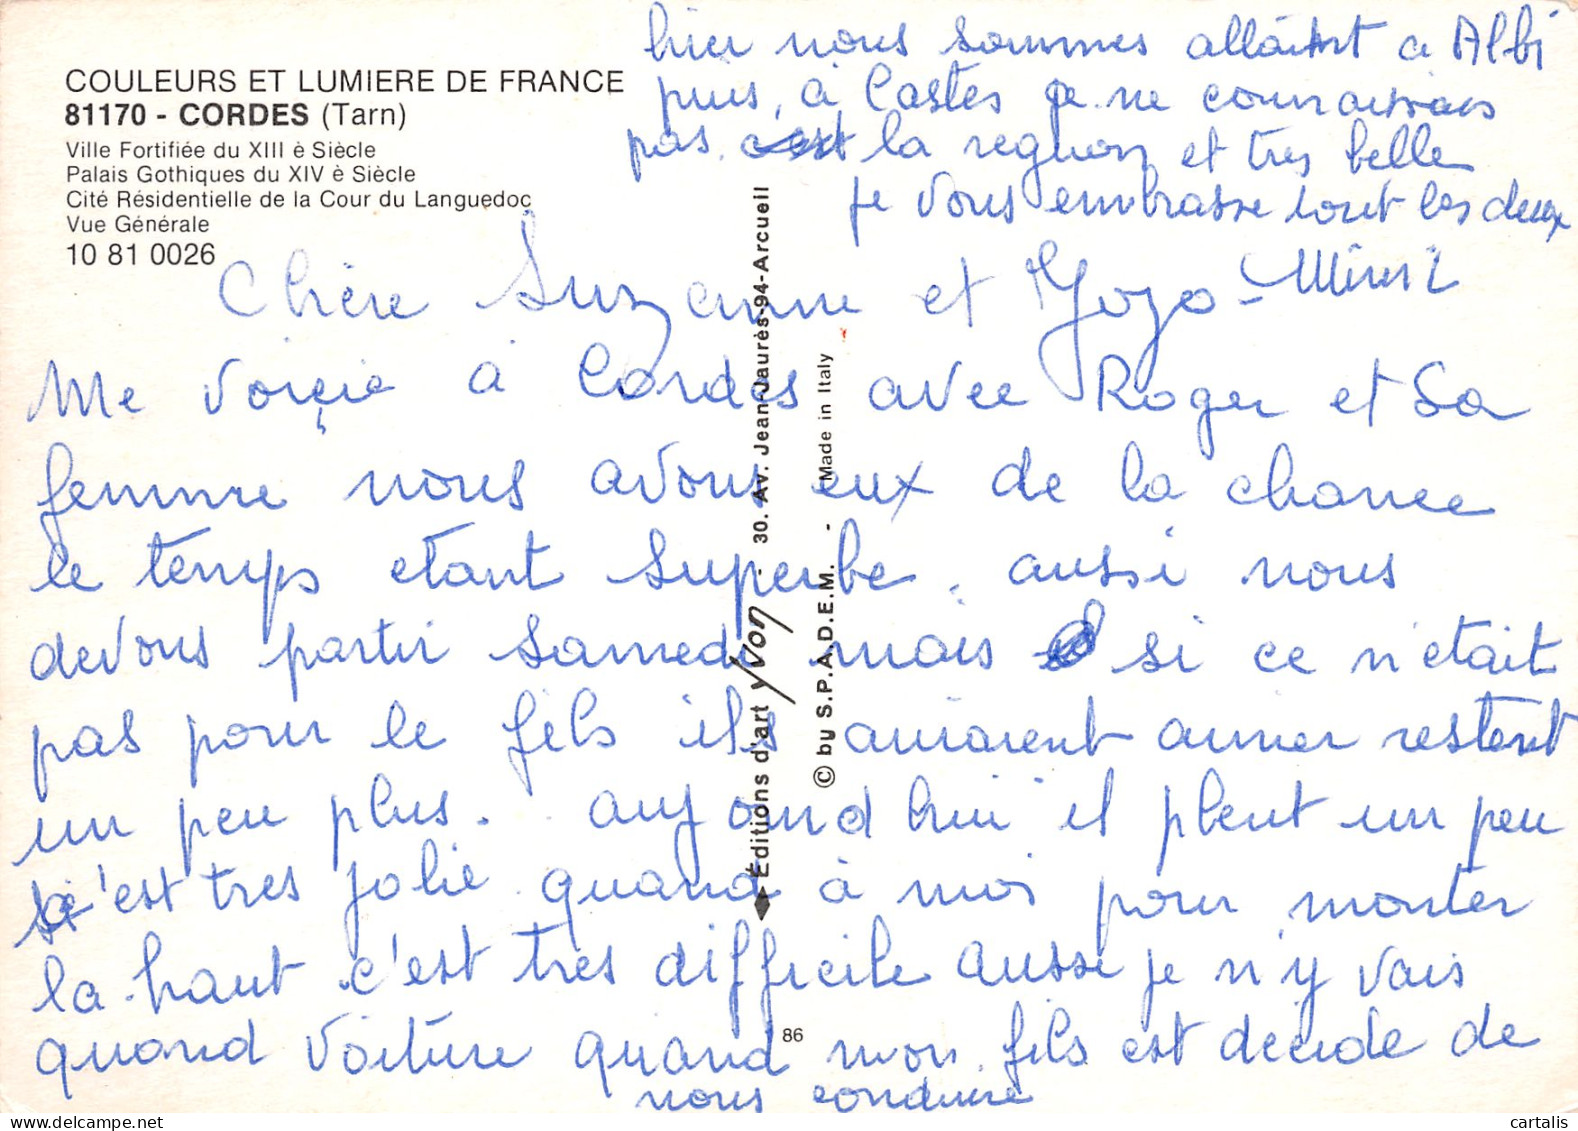 COULEURS ET LUMIERE DE FRANCE
81170 - CORDES (Tarn)
Ville Fortifiée du XIII è Siècle
Palais Gothiques du XIV è Siècle
Cité Résidentielle de la Cour du Languedoc
Vue Générale
10 81 0026
Chère Suzanne et Yoyo -
Me voiçie à Cordes avec Roger et sa
femme nous avons eux de la chance
le temps etant superbe. aussi nous
devons partir samedi mais si ce n'etait
pas pour le fils ils auraient aimer restent
un peu plus. aujourd hui il pleut un peu
c'est tres jolie quand à moi pour monter
la haut c'est tres difficile aussi je n'y vais
quand voiture quand mon fils est décide de
nous conduire
hier nous sommes allaint a Albi
puis, à Castes je ne connaissais
pas la region et tres belle
je vous embrasse tout les deux
Mimi
Éditions d'art yvon - 30. Av. Jean-Jaurès-94-Arcueil
© by S.P.A.D.E.M. - Made in Italy
86
cartalis